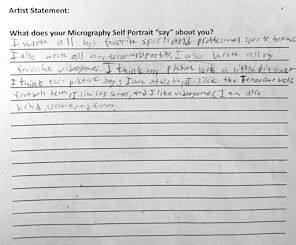 Artist Statement:
What does your Micrography Self Portrait "say" about you?
I wrote all my favorite sports and professional sports teams
I also wrote all my I also wrote all my
favorite videogames. I think my picture was a little
I think this picture says I am athletic, I like the Tennessee vols
football team, I like and I like videogames I am also
kind, creative, and funny